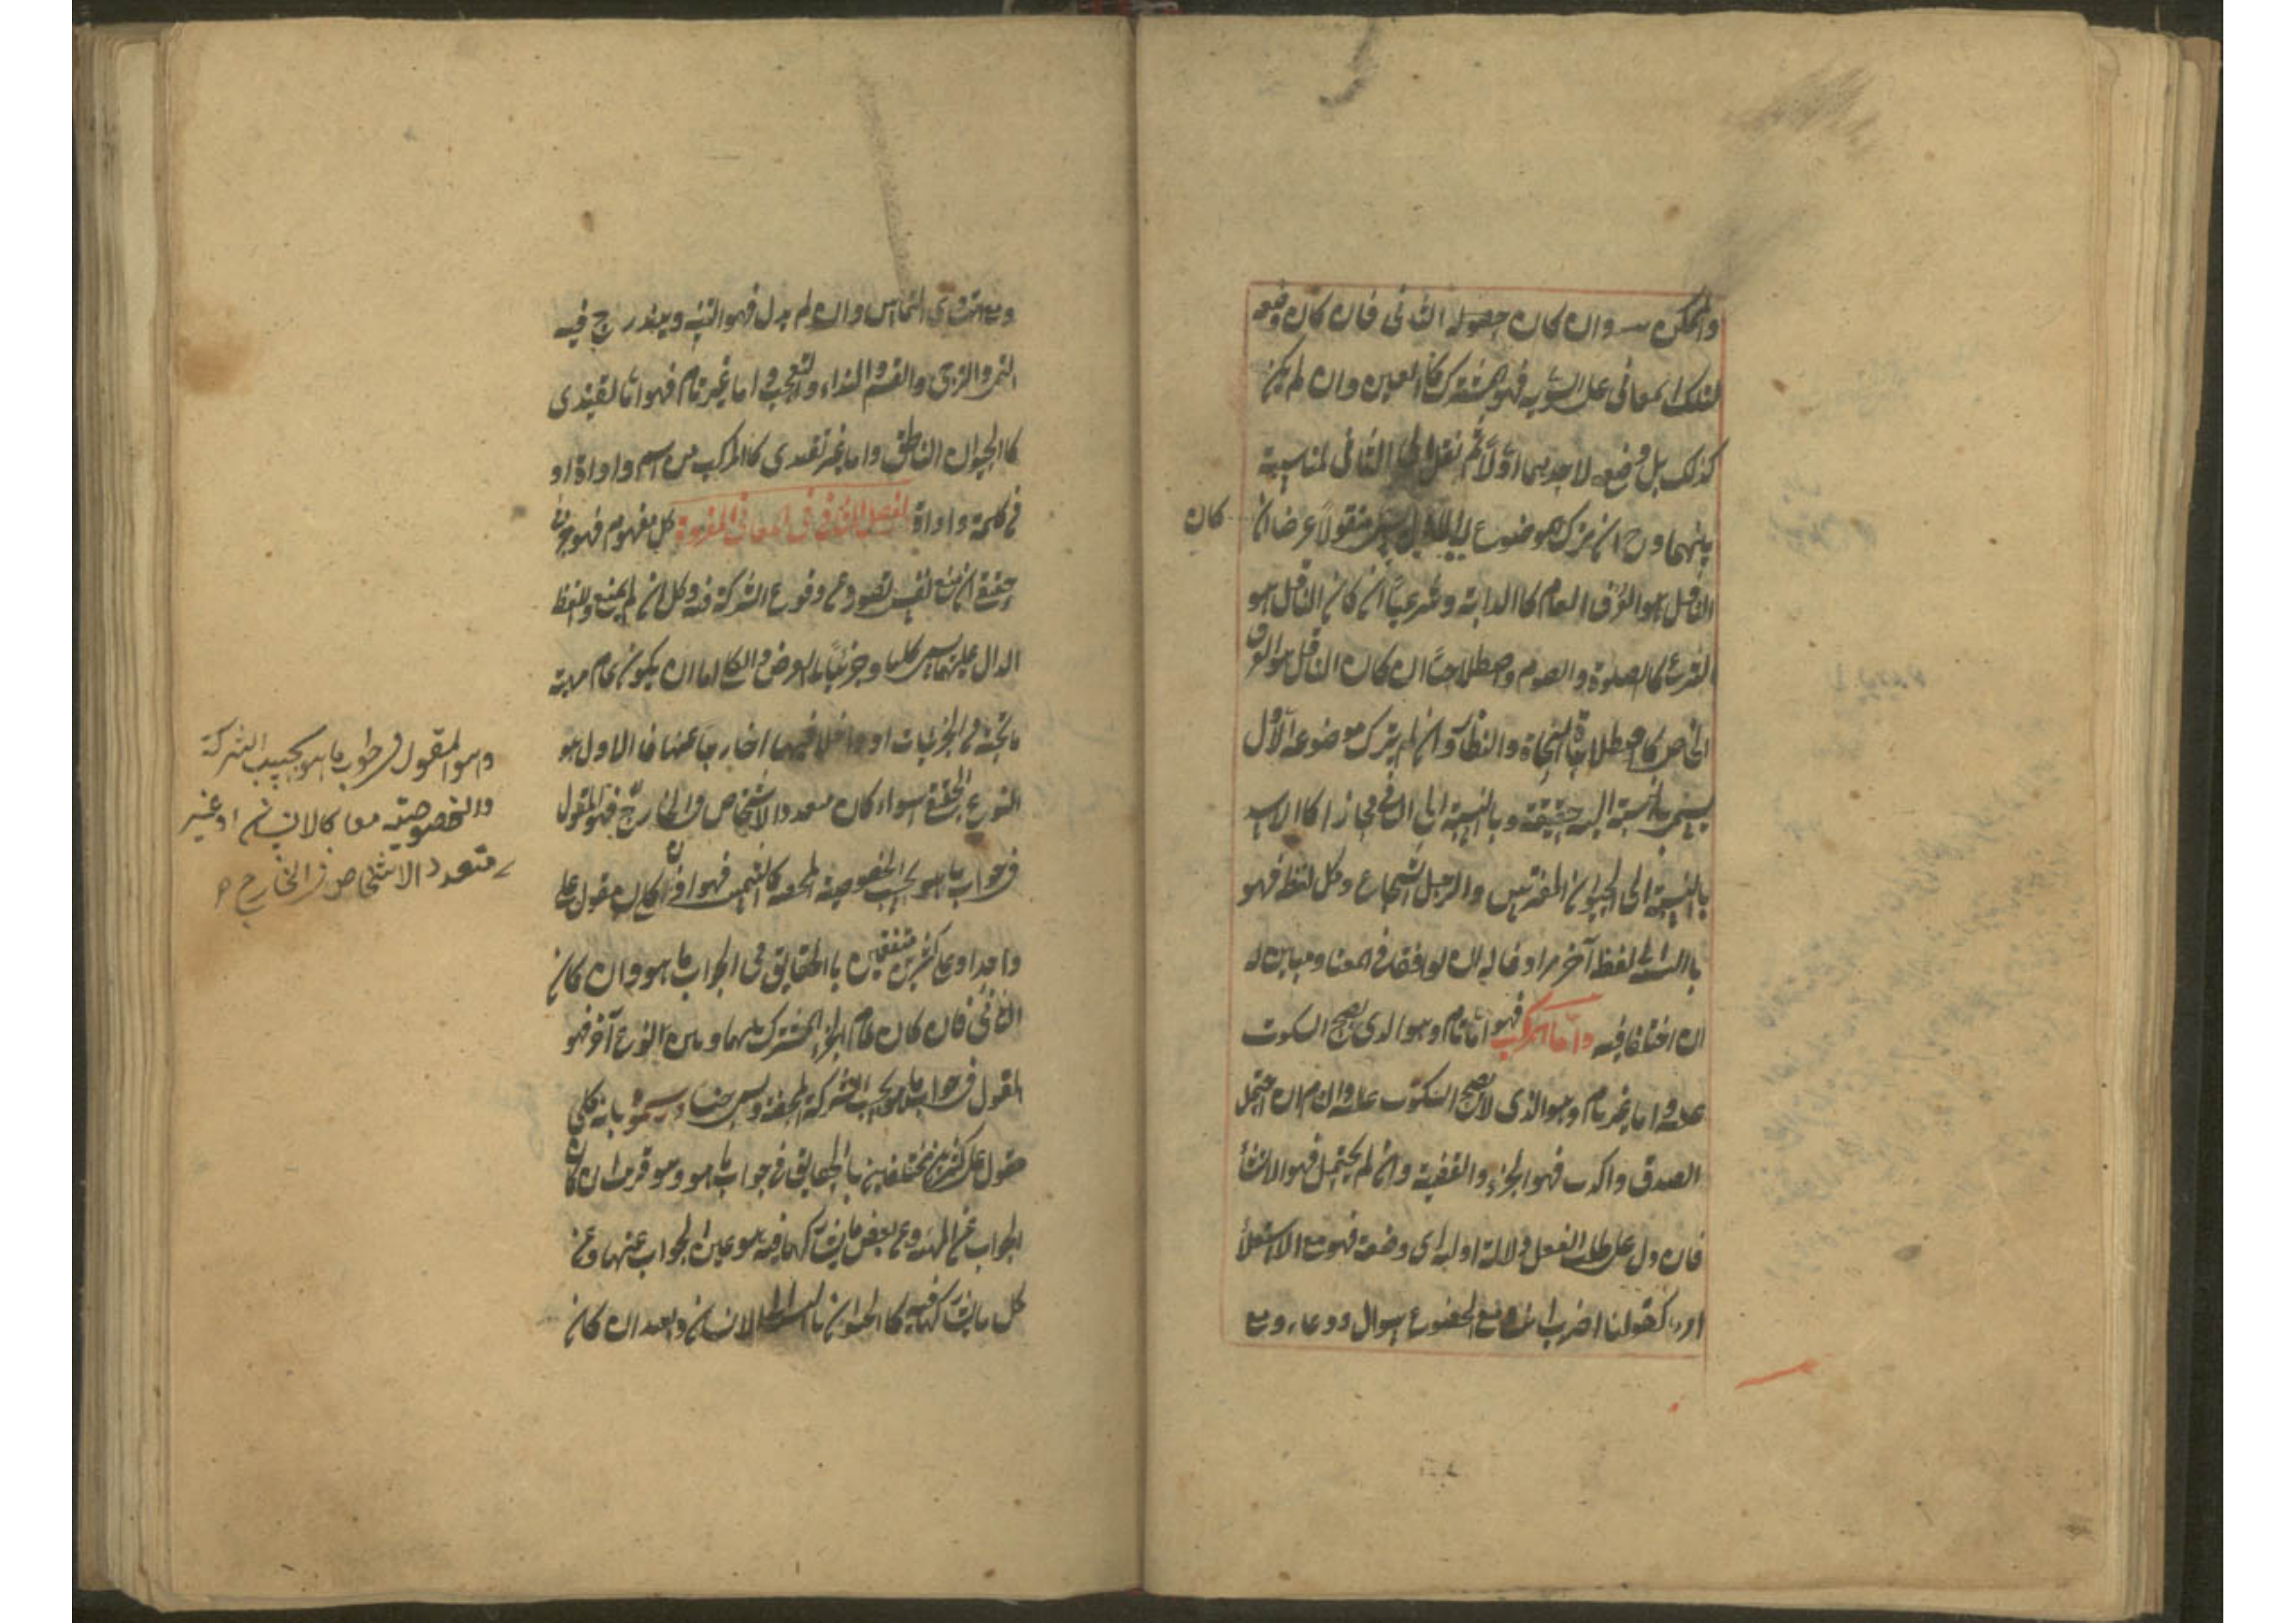 والممكن وان كان حصوله الثانى فان كان وضعه
لتلك المعانى على السوية فهو المشترك كالعين وان لم يكن
كذلك بل وضع لاحديهما اولاً ثم نقل الى الثانى لمناسبة
بينهما وح ان ترك موضوعه الاول يسمى منقولاً عرفيا ان
كان
الناقل هو العرف العام كاالدابة وشرعياً ان كان الناقل هو
الشرع كالصلوة والصوم واصطلاحياً ان كان الناقل هو العرف
الخاص كاصطلاحات النحاة والنظار وان لم يترك موضوعه الاول
يسمى بالنسبة اليه حقيقة وبالنسبة الى الثانى مجازا كاالاسد
بالنسبة الى الحيوان المفترس والرجل الشجاع وكل لفظ فهو
باالنسبة الى لفظ آخر مرادف له ان توافقا فى المعنا ومباين له
ان اختلفا فيه واما المركب فهو اما تام وهو الذى يصح السكوت
عليه واما غير تام وهو الذى لا يصح السكوت عليه والتام ان احتمل
الصدق والكذب فهو الخبر والقضية وان لم يحتمل فهو الانشأ
فان دل على طلب الفعل دلالة اولية اى وضعية فهو مع الاستعلأ
امر كقولنا اضرب انت ومع الخضوع سوال ودعاء ومع
ومع التساوى التماس وان لم يدل فهو التنبيه ويندرج فيه
التمنى والترجى والقسم والنداء والتعجب واما غير تام فهو اما تقييدى
كاالحيوان الناطق واما غير تقييدى كاالمركب من اسم واداة او
من كلمة واداة الفصل الثانى فى المعانى المفردة كل مفهوم فهو جزئى
حقيقى ان منع نفس تصوره عن وقوع الشركة فيه وكلى ان لم يمنع واللفظ
الدال عليهما يسمى كليا وجزئياً بالعرض والكلى اما ان يكون تمام مهية
ما تحته من الجزئيات او داخلا فيها او خارجاً عنها فاالاول هو
النوع الحقيقى سواء كان متعدد الاشخاص فى الخارج فهو المقول
فى جواب ما هو بحسب الخصوصية المحضة كالشمس فهو اذن كلى مقول على
واحد او على كثيرين متفقين باالحقايق فى الجواب ما هو وان كان
الثانى فان كان تمام الجزء المشترك بينها وبين النوع آخر فهو
المقول فى جواب ما هو بحسب الشركة المحضة ويسمى جنسا ورسموه بانه كلى
مقول على كثيرين مختلفين باالحقايق فى جواب ما هو وهو قريب ان كان
الجواب عن المهية وعن بعض ما يشاركها فيه هو عين الجواب عنها وعن
كل ما يشاركها فيه كاالحيوان باالنسبة الى الانسان وبعيد ان كان
وهو المقول فى جواب ما هو بحسب الشركة
والخصوصية معا كالانسان او غير
متعدد الاشخاص فى الخارج